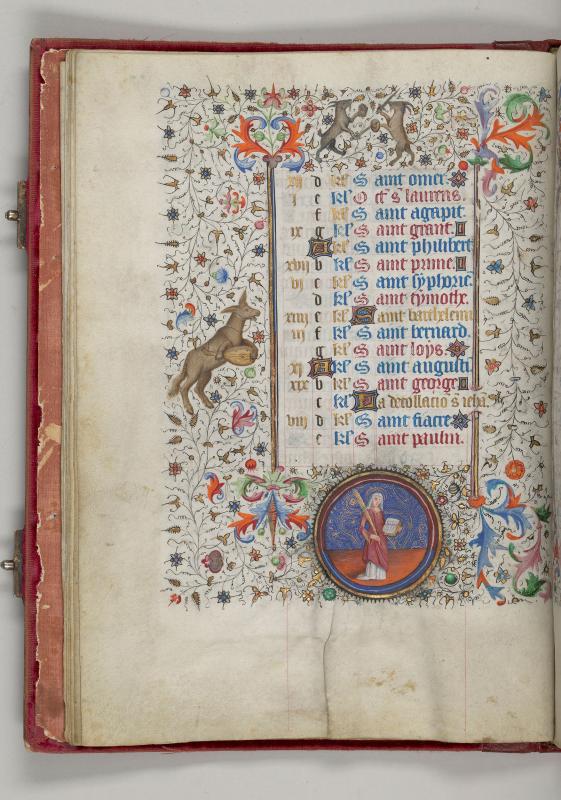 d kl' Saint omer.
i e kl' Oct' s laurens.
f kl' Saint agapit.
ix g kl' Saint grant.
A kl' Saint philibert
xvii b kl' Saint prime.
vi c kl' Saint syphorie.
d kl' Saint tymothe.
xiiii e kl' Saint barthelemi
iii f kl' Saint bernard.
g kl' Saint loys.
xi A kl' Saint augusti.
xix b kl' Saint george
c kl' La decollacio s ieha.
viii d kl' Saint fiacre
e kl' Saint paulin.